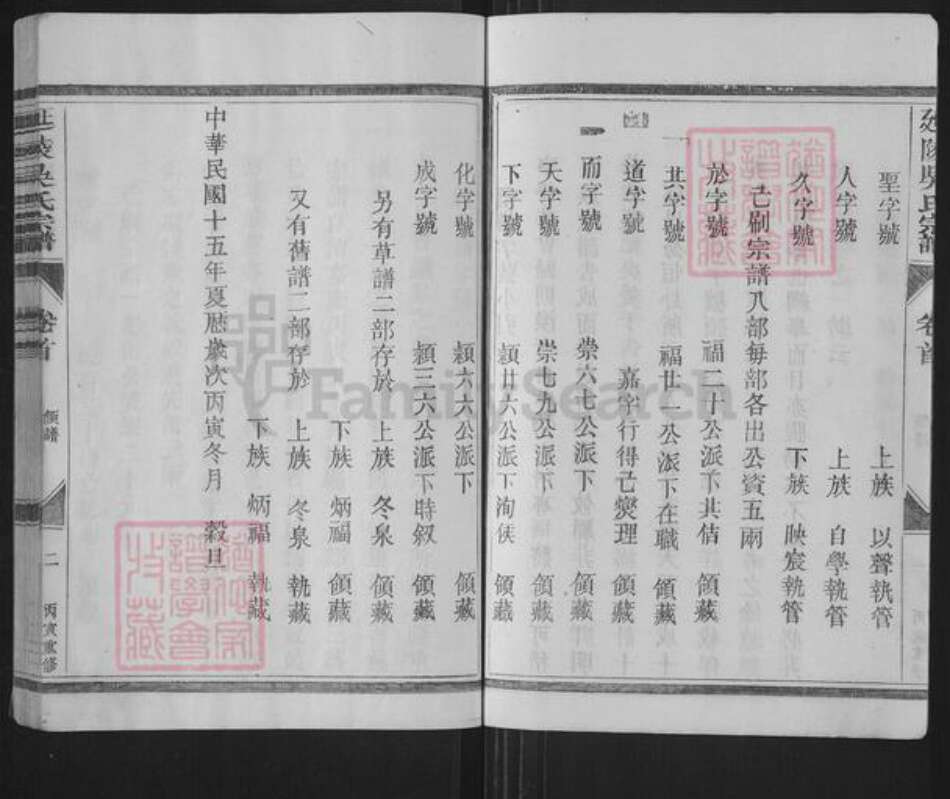 延陵吳氏宗譜 卷首
聖字號 上族 以聲執管
人字號 上族 自學執管
久字號 下族 映宸執管
已刷宗譜八部每部各出公資五兩
於字號 福二十公派下其佶 領藏
其字號 福廿一公派下在職 領藏
道字號 嘉字行得己燮理 領藏
而字號 崇六七公派下 領藏
天字號 崇七九公派下 領藏
下字號 穎廿六公派下洵俟 領藏
化字號 穎六六公派下 領藏
成字號 穎三六公派下時叙 領藏
另有草譜二部存於 上族 冬泉 領藏
下族 炳福 領藏
又有舊譜二部存於 上族 冬泉 執藏
下族 炳福 執藏
中華民國十五年夏曆歲次丙寅冬月 穀旦
延陵吳氏宗譜 卷首 領譜 二 丙寅重修
FamilySearch